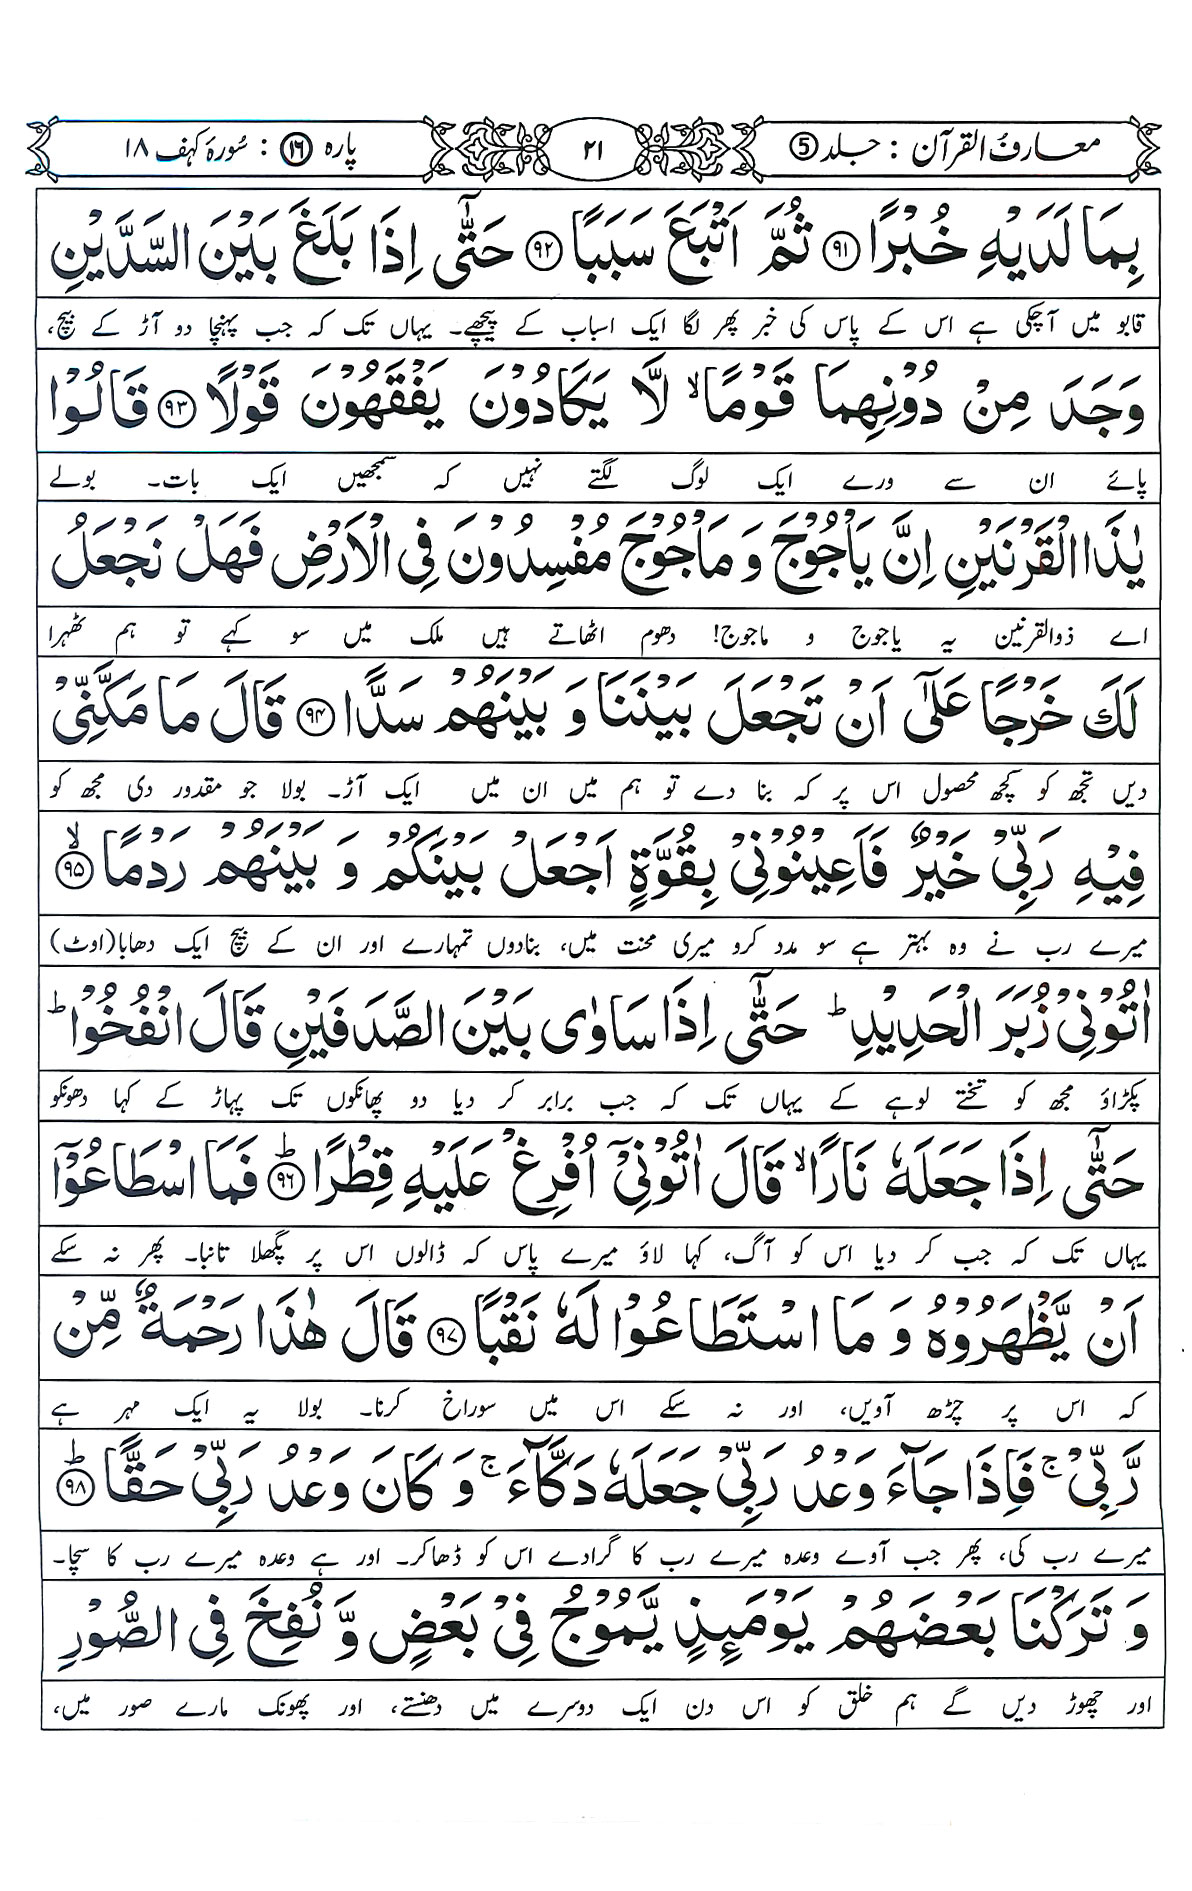 معارف القرآن : جلد ⑤
۲۱
پارہ ⑯ : سُورۂ کہف ۱۸
بِمَا لَدَیْهِ خُبْرًا ﴿۹۱﴾ ثُمَّ اَتْبَعَ سَبَبًا ﴿۹۲﴾ حَتّٰۤی اِذَا بَلَغَ بَیْنَ السَّدَّیْنِ
قابو میں آچکی ہے اس کے پاس کی خبر پھر لگا ایک اسباب کے پیچھے۔ یہاں تک کہ جب پہنچا دو آڑ کے بیچ،
وَجَدَ مِنْ دُوْنِهِمَا قَوْمًا ۙ لَّا یَكَادُوْنَ یَفْقَهُوْنَ قَوْلًا ﴿۹۳﴾ قَالُوْا
پائے ان سے ورے ایک لوگ لگتے نہیں کہ سمجھیں ایک بات۔ بولے
یٰذَا الْقَرْنَیْنِ اِنَّ یَاْجُوْجَ وَ مَاْجُوْجَ مُفْسِدُوْنَ فِی الْاَرْضِ فَهَلْ نَجْعَلُ
اے ذوالقرنین یہ یاجوج و ماجوج! دھوم اٹھاتے ہیں ملک میں سو کہے تو ہم ٹھہرا
لَكَ خَرْجًا عَلٰۤی اَنْ تَجْعَلَ بَیْنَنَا وَ بَیْنَهُمْ سَدًّا ﴿۹۴﴾ قَالَ مَا مَكَّنِّیْ
دیں تجھ کو کچھ محصول اس پر کہ بنا دے تو ہم میں ان میں ایک آڑ۔ بولا جو مقدور دی مجھ کو
فِیْهِ رَبِّیْ خَیْرٌ فَاَعِیْنُوْنِیْ بِقُوَّةٍ اَجْعَلْ بَیْنَكُمْ وَ بَیْنَهُمْ رَدْمًا ﴿۹۵﴾ ۙ
میرے رب نے وہ بہتر ہے سو مدد کرو میری محنت میں، بنادوں تمہارے اور ان کے بیچ ایک دھابا(اوٹ)
اٰتُوْنِیْ زُبَرَ الْحَدِیْدِ ؕ حَتّٰۤی اِذَا سَاوٰی بَیْنَ الصَّدَفَیْنِ قَالَ انْفُخُوْا ؕ
پکڑاؤ مجھ کو تختے لوہے کے یہاں تک کہ جب برابر کر دیا دو پھانکوں تک پہاڑ کے کہا دھونکو
حَتّٰۤی اِذَا جَعَلَهٗ نَارًا ۙ قَالَ اٰتُوْنِیْۤ اُفْرِغْ عَلَیْهِ قِطْرًا ﴿۹۶﴾ ؕ فَمَا اسْطَاعُوْۤا
یہاں تک کہ جب کر دیا اس کو آگ، کہا لاؤ میرے پاس کہ ڈالوں اس پر پگھلا تانبا۔ پھر نہ سکے
اَنْ یَّظْهَرُوْهُ وَ مَا اسْتَطَاعُوْا لَهٗ نَقْبًا ﴿۹۷﴾ قَالَ هٰذَا رَحْمَةٌ مِّنْ
کہ اس پر چڑھ آویں، اور نہ سکے اس میں سوراخ کرنا۔ بولا یہ ایک مہر ہے
رَّبِّیْ ۚ فَاِذَا جَآءَ وَعْدُ رَبِّیْ جَعَلَهٗ دَكَّآءَ ۚ وَ كَانَ وَعْدُ رَبِّیْ حَقًّا ﴿۹۸﴾ ؕ
میرے رب کی، پھر جب آوے وعدہ میرے رب کا گرادے اس کو ڈھاکر۔ اور ہے وعدہ میرے رب کا سچا۔
وَ تَرَكْنَا بَعْضَهُمْ یَوْمَىِٕذٍ یَّمُوْجُ فِیْ بَعْضٍ وَّ نُفِخَ فِی الصُّوْرِ
اور چھوڑ دیں گے ہم خلق کو اس دن ایک دوسرے میں دھنستے، اور پھونک مارے صور میں،